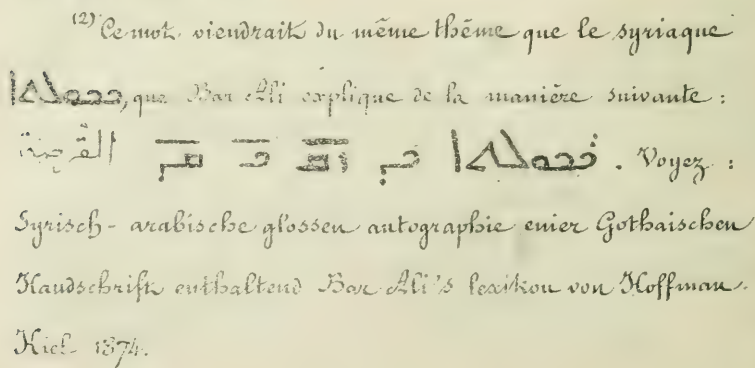 (2) Ce mot viendrait du même thème que le syriaque
, que Bar Ali explique de la manière suivante :
. Voyez :
Syrisch - arabische glossen autographie enier Gothaischen
Handschrift enthaltend Bar Ali's lexikon von Hoffman.
Kiel - 1874.